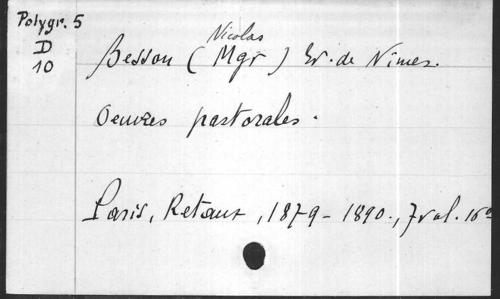 Polygr. 5
D
10
Nicolas
Besson (Mgr) Ev. de Nîmes.
Oeuvres pastorales.
Paris, Retaux, 1879-1890., 7 vol. 16°